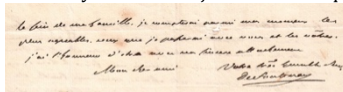 le sein de ma famille. je compterai parmi mes momens les
plus agréables, ceux que je passerai avec vous et les vôtres.
j'ai l'honneur d'être avec un sincère attachement
Mon cher ami Votre très humble